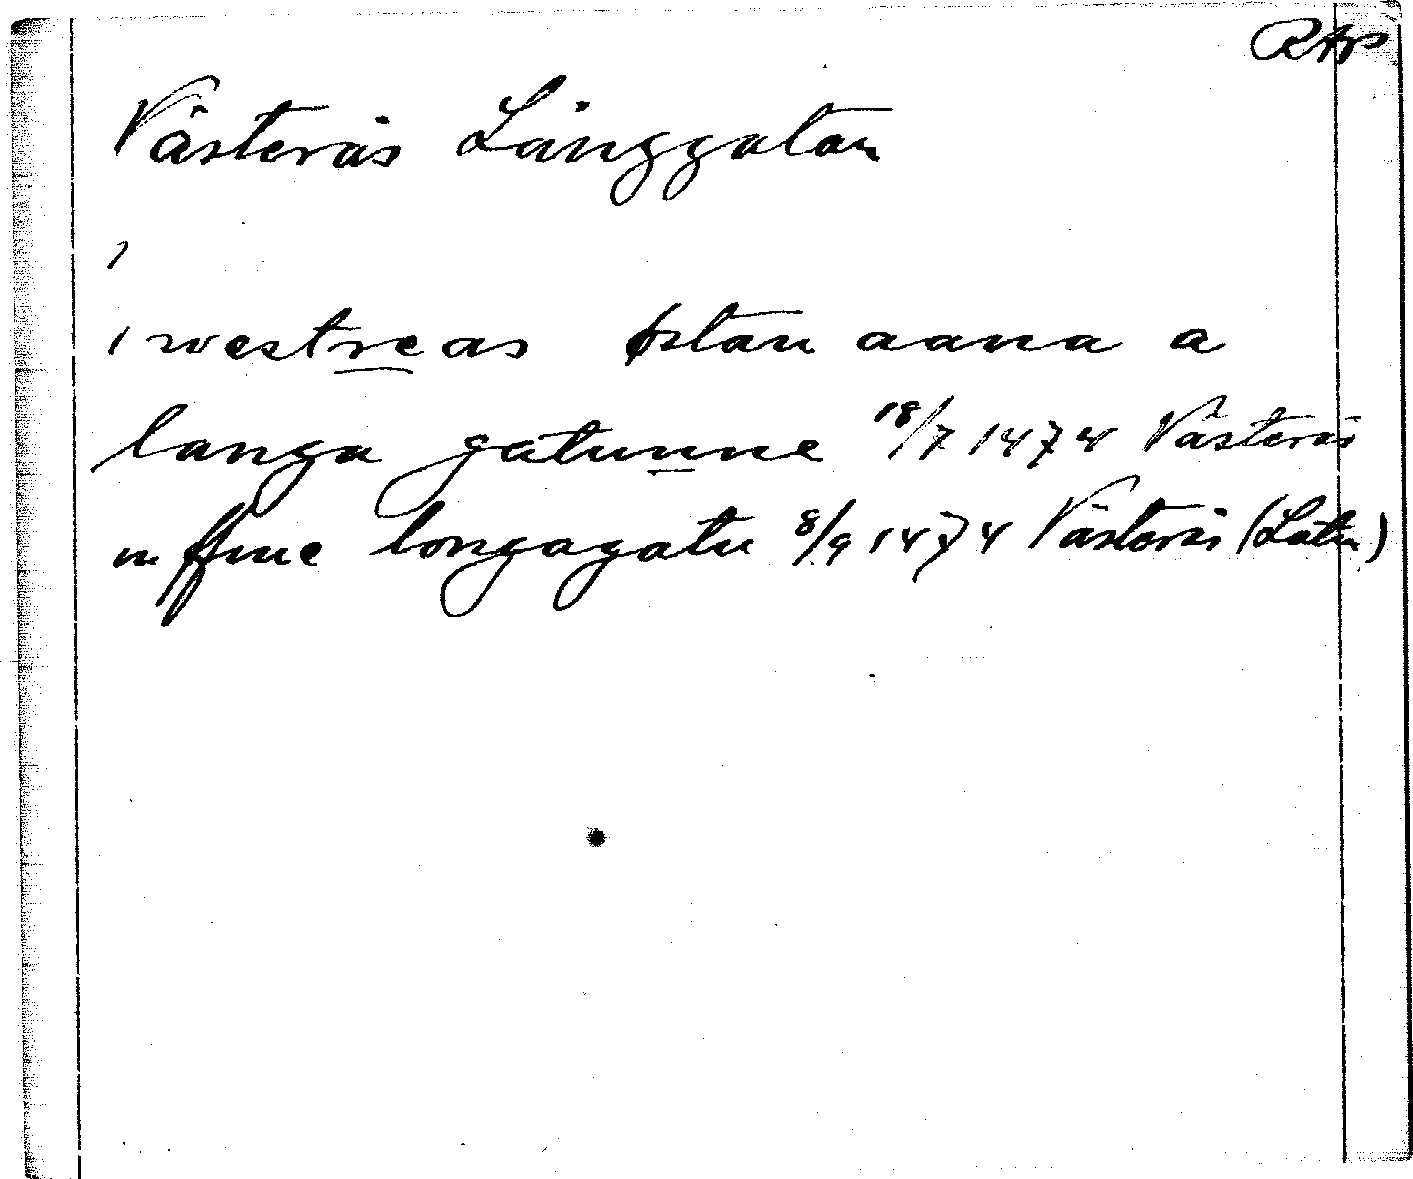 RAP
Västerås Långgatan
i
i westreas østan aana a
langa gatunne 18/7 1474 Västerås
in fine longagatu 8/9 1474 Västerås (Latin)